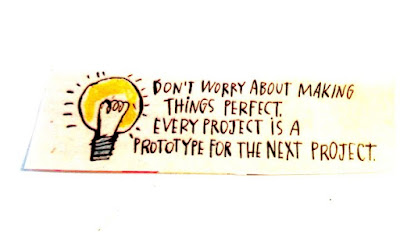 DON'T WORRY ABOUT MAKING
THINGS PERFECT.
EVERY PROJECT IS A
PROTOTYPE FOR THE NEXT PROJECT.